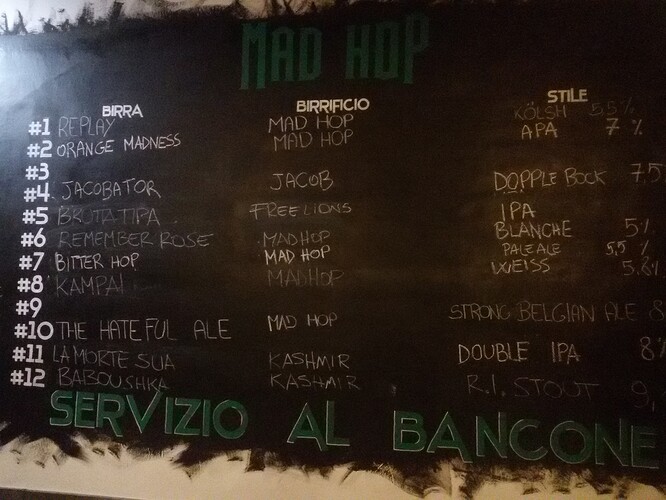 MAD HOP
BIRRA BIRRIFICIO STILE
#1 REPLAY MAD HOP KÖLSH 5.5%
#2 ORANGE MADNESS MAD HOP APA 7%
#3
#4 JACOBATOR JACOB DOPPLE BOCK 7.5
#5 BRUTATIPA FREELIONS IPA
#6 REMEMBER ROSE MADHOP BLANCHE 5%
#7 BITTER HOP MAD HOP PALE ALE 5,5%
#8 KAMPAI MADHOP WEISS 5.8%
#9
#10 THE HATEFUL ALE MAD HOP STRONG BELGIAN ALE 8
#11 LA MORTE SUA KASHMIR DOUBLE IPA 8%
#12 BABOUSHKA KASHMIR R.I. STOUT 9,
SERVIZIO AL BANCONE